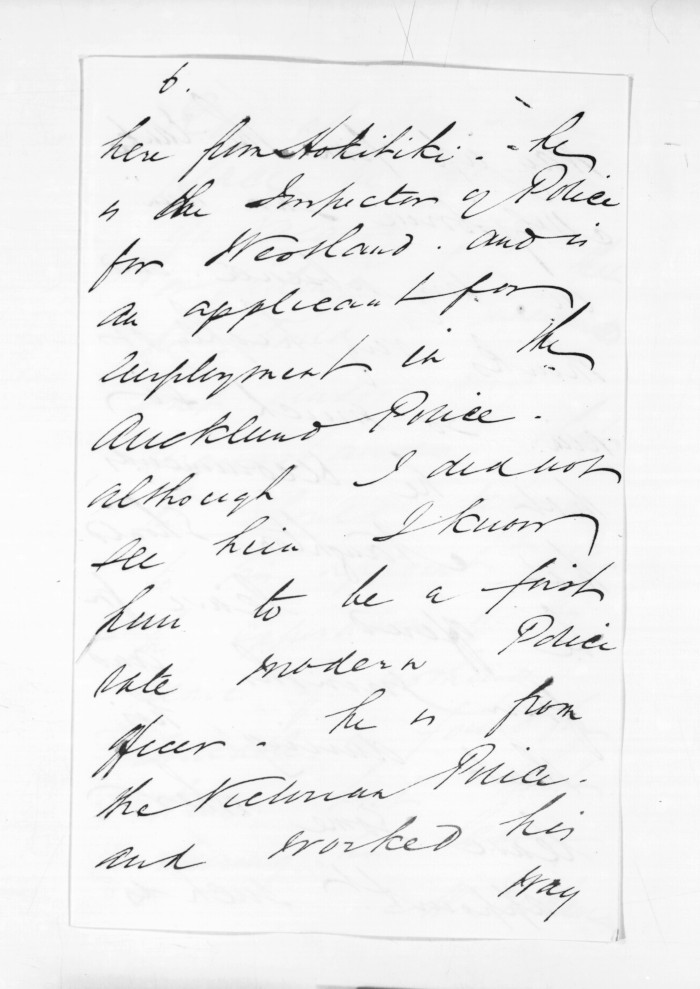 6.
here from Hokitiki. - he
is the Inspector of Police
for Westland. and is
an applicant for
employment in the
Auckland Police.
although I did not
see him I know
him to be a first
rate modern Police
officer. he is from
the Victorian Police.
and worked his
way